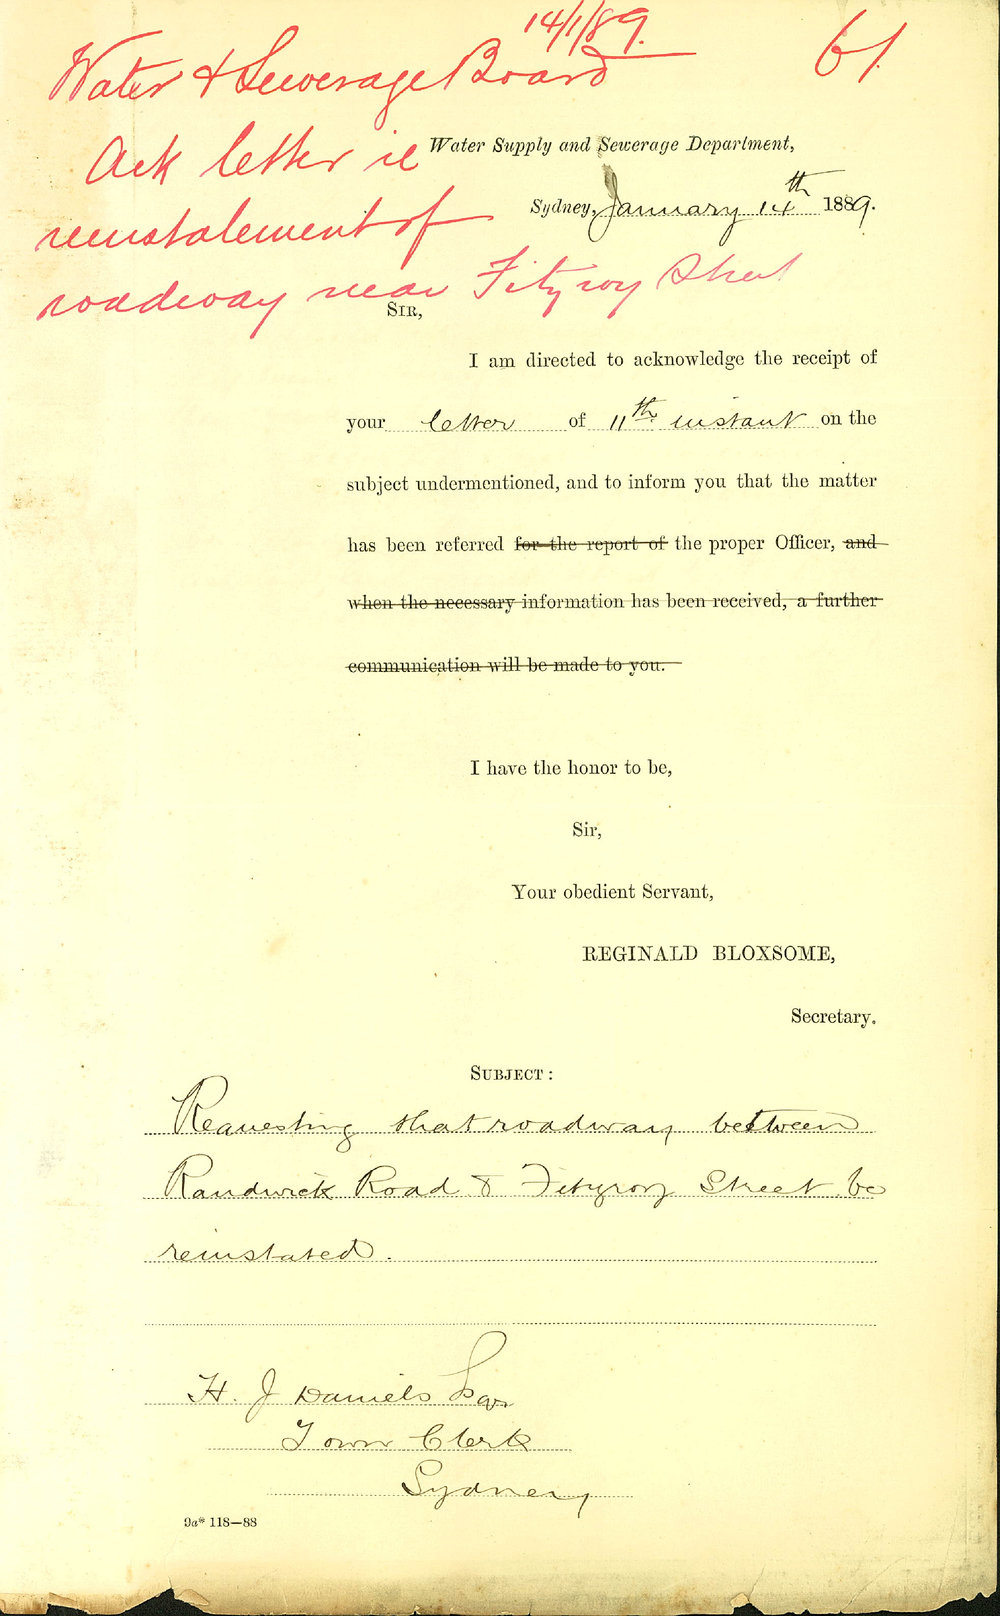 14/1/89.
61.
Water & Sewerage Board
Ack letter re
reinstalement of
roadway near Fitzroy Street
Water Supply and Sewerage Department,
Sydney, January 14th 1889.
SIR,
I am directed to acknowledge the receipt of
your letter of 11th instant on the
subject undermentioned, and to inform you that the matter
has been referred for the report of the proper Officer, and
when the necessary information has been received, a further
communication will be made to you.
I have the honor to be,
Sir,
Your obedient Servant,
REGINALD BLOXSOME,
Secretary.
SUBJECT:
Requesting that roadway between
Randwick Road & Fitzroy Street be
reinstated.
H. J Daniels Esqr
Town Clerk
Sydney
9a* 118—88